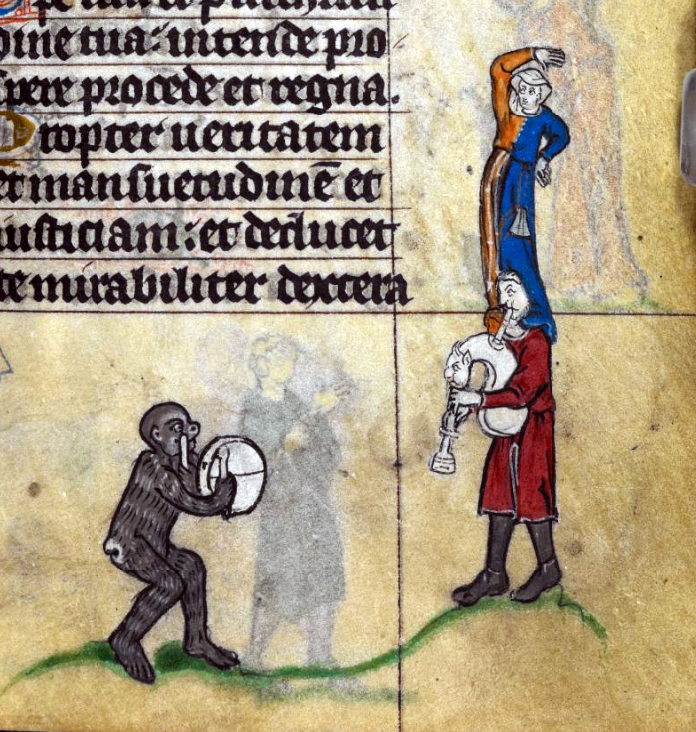 pe
ome tua: intende pro
spere procede et regna.
Propter ueritatem
et mansuetudinē et
iusticiam: et deducet
te mirabiliter dextera